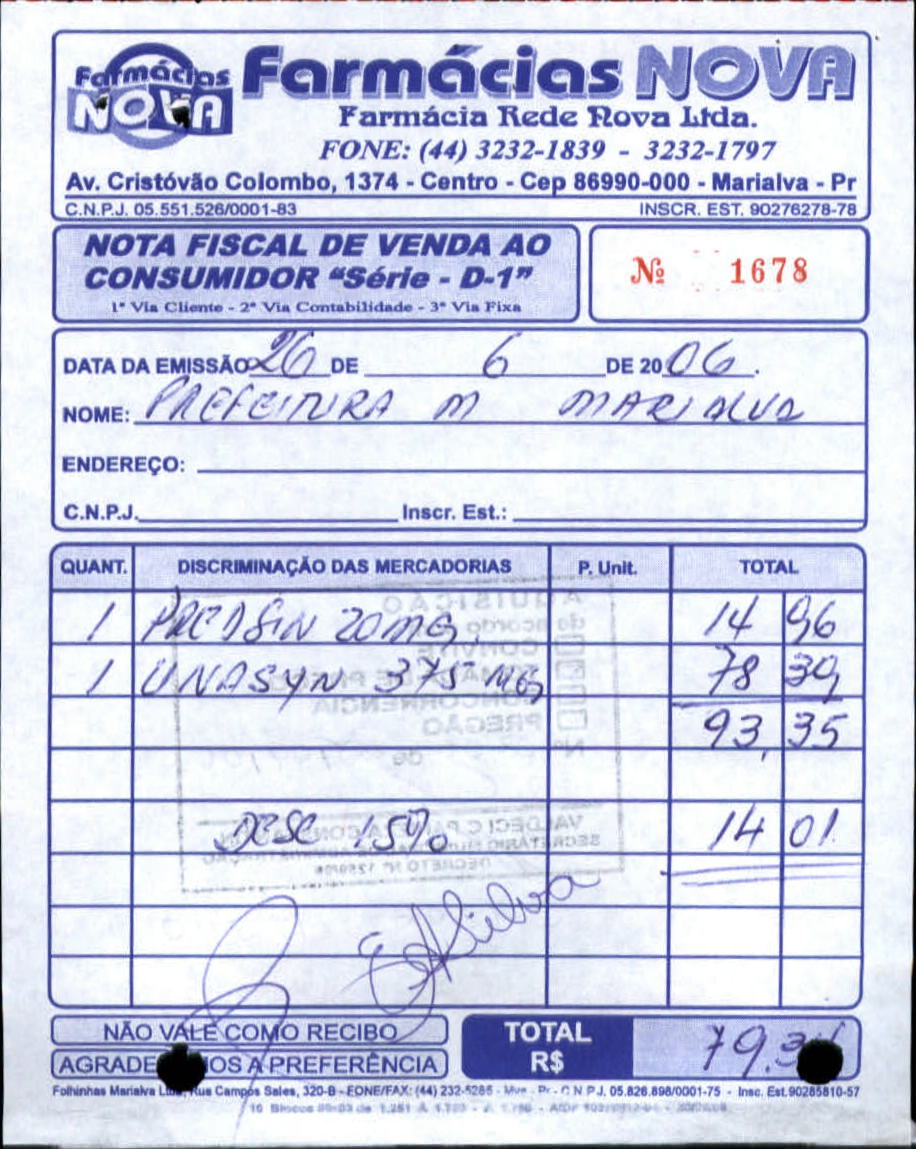 Farmácias NOVA
Farmácias NOVA
Farmácia Rede Nova Ltda.
FONE: (44) 3232-1839 - 3232-1797
Av. Cristóvão Colombo, 1374 - Centro - Cep 86990-000 - Marialva - Pr
C.N.P.J. 05.551.526/0001-83 INSCR. EST. 90276278-78
NOTA FISCAL DE VENDA AO
CONSUMIDOR "Série - D-1"
Nº 1678
1ª Via Cliente - 2ª Via Contabilidade - 3ª Via Fixa
DATA DA EMISSÃO 26 DE 6 DE 2006.
NOME: PREFEITURA M MARIALVA
ENDEREÇO:
C.N.P.J. Inscr. Est.:
QUANT. DISCRIMINAÇÃO DAS MERCADORIAS P. Unit. TOTAL
AQUISIÇÃO
de acordo
1 PREDSIN 20MG 14 96
CONVITE
1 UNASYN 375MG 78 39
TOMADA DE PREÇO
CONCORRÊNCIA
93,35
PREGÃO
Nº de
DESC 15% 14 01
VALDECI C
SECRETÁRIO ADMINISTRAÇÃO
DECRETO Nº
Silva
NÃO VALE COMO RECIBO
AGRADE OS A PREFERÊNCIA
TOTAL
R$ 79.3
Folhinhas Marialva Rua Campos Sales, 320-B - FONE/FAX: (44) 232-5285 - Pr - C.N.P.J. 05.826.898/0001-75 - Insc. Est.90265810-57